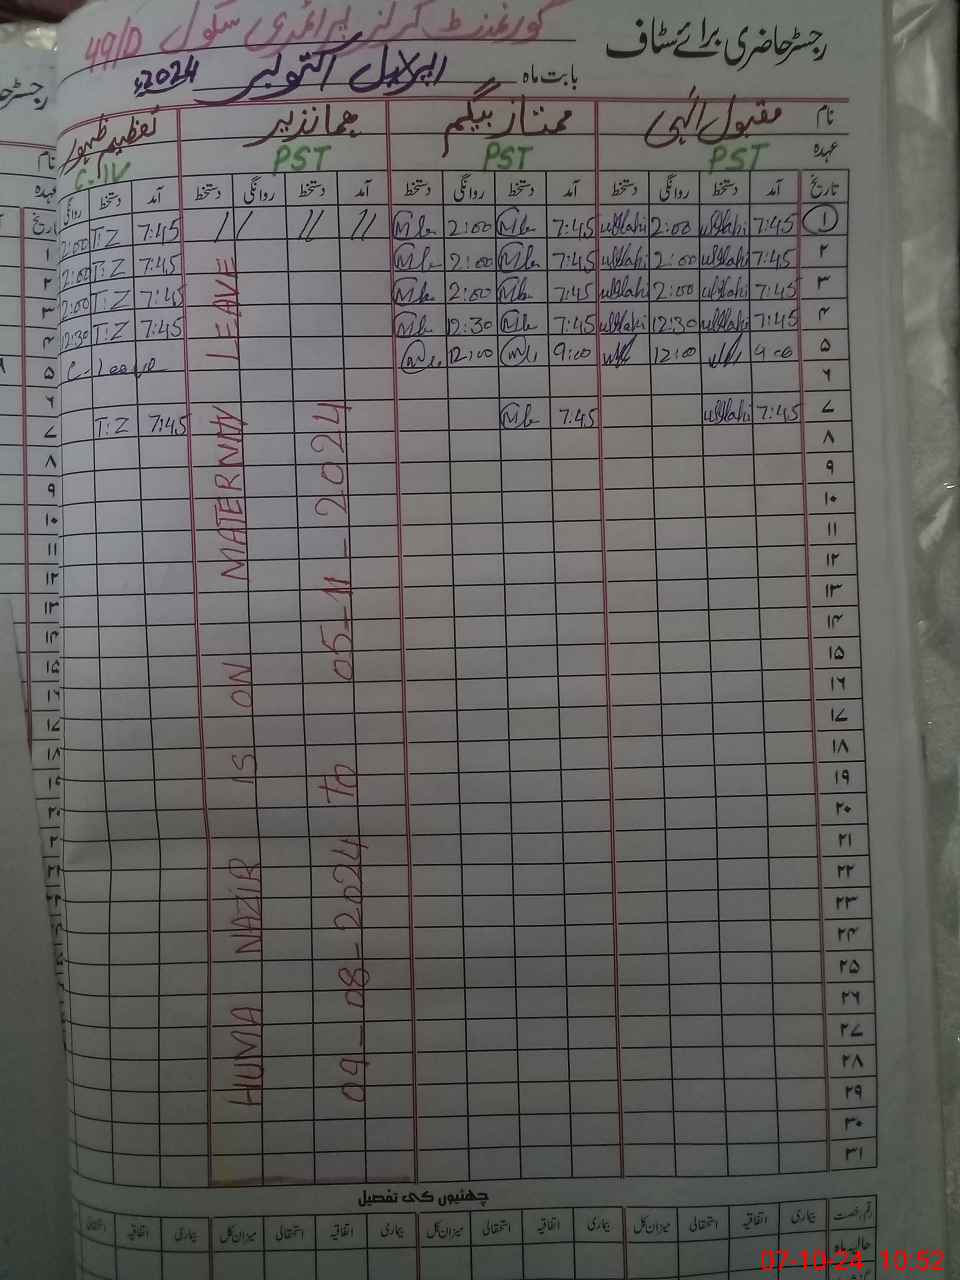 رجسٹر حاضری برائے سٹاف
گورنمنٹ گرلز پرائمری سکول 49/D
بابت ماہ اکتوبر 2024ء
نام مقبول الٰہی ممتاز بیگم ہما نذیر تعظیم ظہور
عہدہ PST PST PST C-IV
تاریخ آمد دستخط روانگی دستخط آمد دستخط روانگی دستخط آمد دستخط روانگی دستخط آمد دستخط روانگی
۱ 7:45 2:00 7:45 2:00 // // // 7:45 T:Z 2:00
۲ 7:45 2:00 7:45 2:00 7:45 T:Z 2:00
۳ 7:45 2:00 7:45 2:00 7:45 T:Z 2:00
۴ 7:45 12:30 7:45 12:30 7:45 T:Z 12:30
۵ 9:00 12:00 9:00 12:00 C-Leave
۶
۷ 7:45 7:45 7:45 T:Z
۸
۹
۱۰
۱۱
۱۲
۱۳
۱۴
۱۵
۱۶
۱۷
۱۸
۱۹
۲۰
۲۱
۲۲
۲۳
۲۴
۲۵
۲۶
۲۷
۲۸
۲۹
۳۰
۳۱
HUMA NAZIR IS ON MATERNITY LEAVE
09-08-2024 to 05-11-2024
چھٹیوں کی تفصیل
رقم رخصت بیماری اتفاقیہ استحقاقی میزان کل بیماری اتفاقیہ استحقاقی میزان کل بیماری اتفاقیہ استحقاقی میزان کل بیماری اتفاقیہ استحقاقی
حالیہ ماہ
07-10-24 10:52